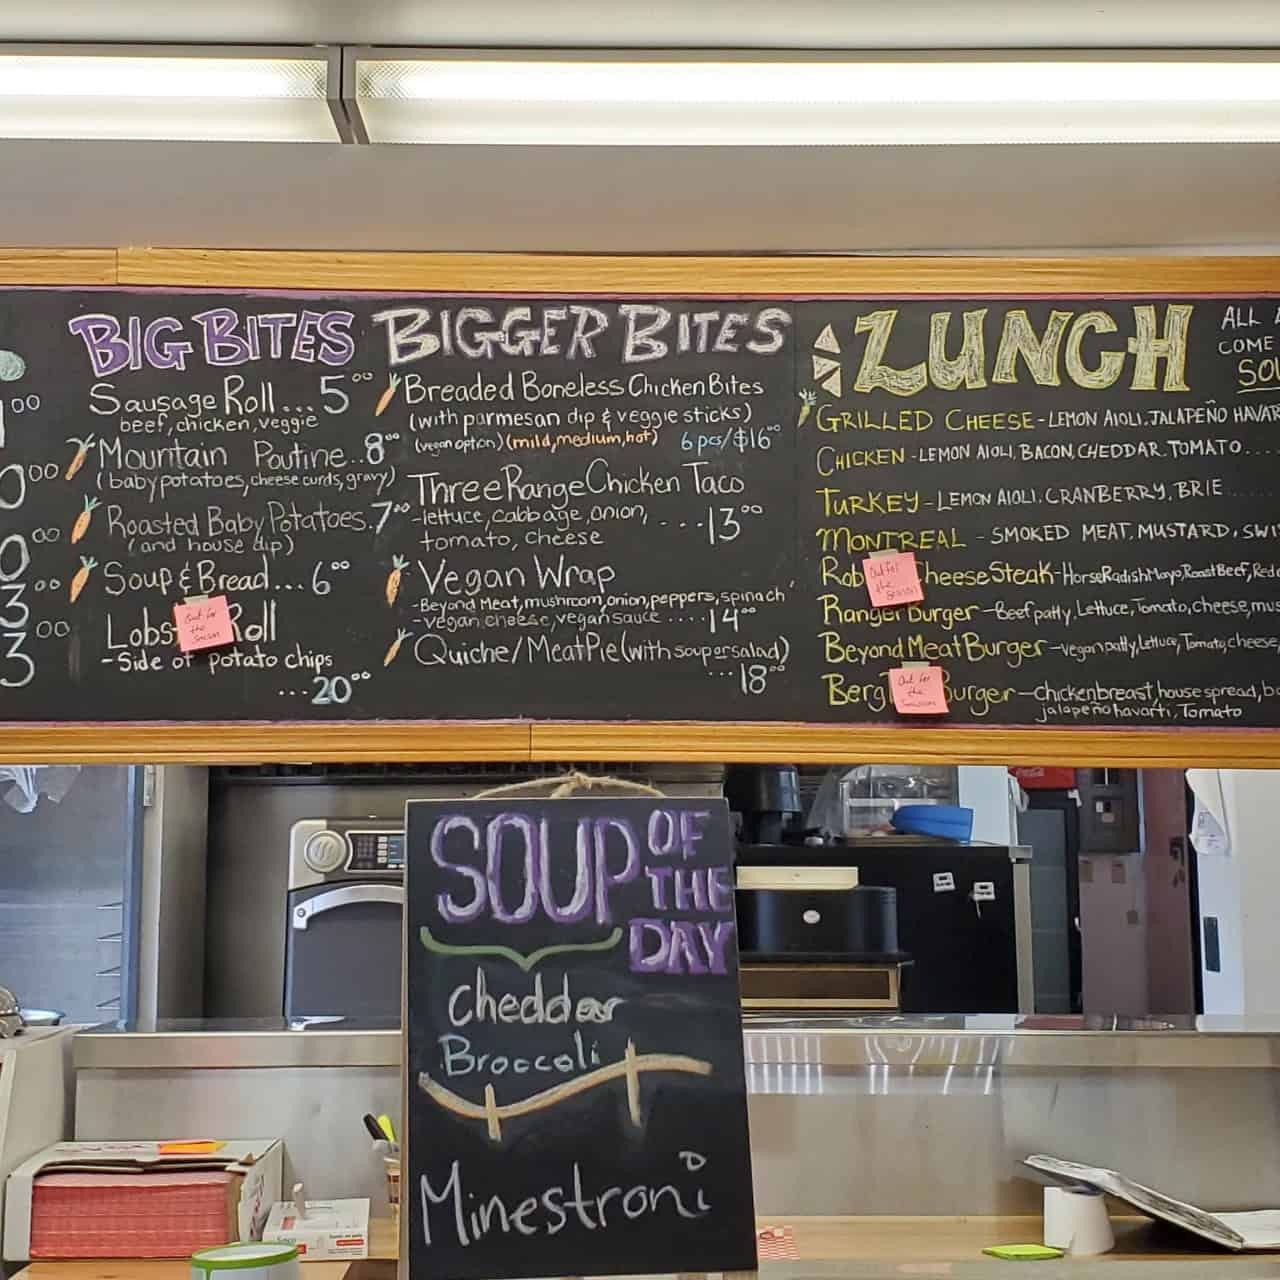 1 00
0 00
0 00
3 00
3 00
BIG BITES
Sausage Roll... 5 00
beef, chicken, veggie
Mountain Poutine..8 00
(baby potatoes, cheese curds, gravy)
Roasted Baby Potatoes.7 00
(and house dip)
Soup & Bread... 6 00
Lobs Roll
Out for the season
-Side of potato chips
...20 00
BIGGER BITES
Breaded Boneless Chicken Bites
(with parmesan dip & veggie sticks)
(vegan option) (mild, medium, hot) 6 pcs/$16 00
Three Range Chicken Taco
-lettuce, cabbage, onion, ....13 00
tomato, cheese
Vegan Wrap
-Beyond Meat, mushroom, onion, peppers, spinach
-vegan cheese, vegan sauce ....14 00
Quiche/Meat Pie (with soup or salad)
...18 00
LUNCH
ALL
COME
SOU
GRILLED CHEESE - LEMON AIOLI, JALAPEÑO HAVAR
CHICKEN - LEMON AIOLI, BACON, CHEDDAR, TOMATO....
TURKEY - LEMON AIOLI, CRANBERRY, BRIE ......
MONTREAL - SMOKED MEAT, MUSTARD, SWI
Rob Cheese Steak - Horse Radish Mayo, Roast Beef, Red
Out for the season
Ranger Burger - Beef patty, Lettuce, Tomato, cheese, mus
Beyond Meat Burger - vegan patty, Lettuce, Tomato, cheese,
Berg Burger - chicken breast, house spread, ba
Out for the Season
jalapeño havarti, Tomato
SOUP OF THE DAY
Cheddar
Broccoli
Minestroni